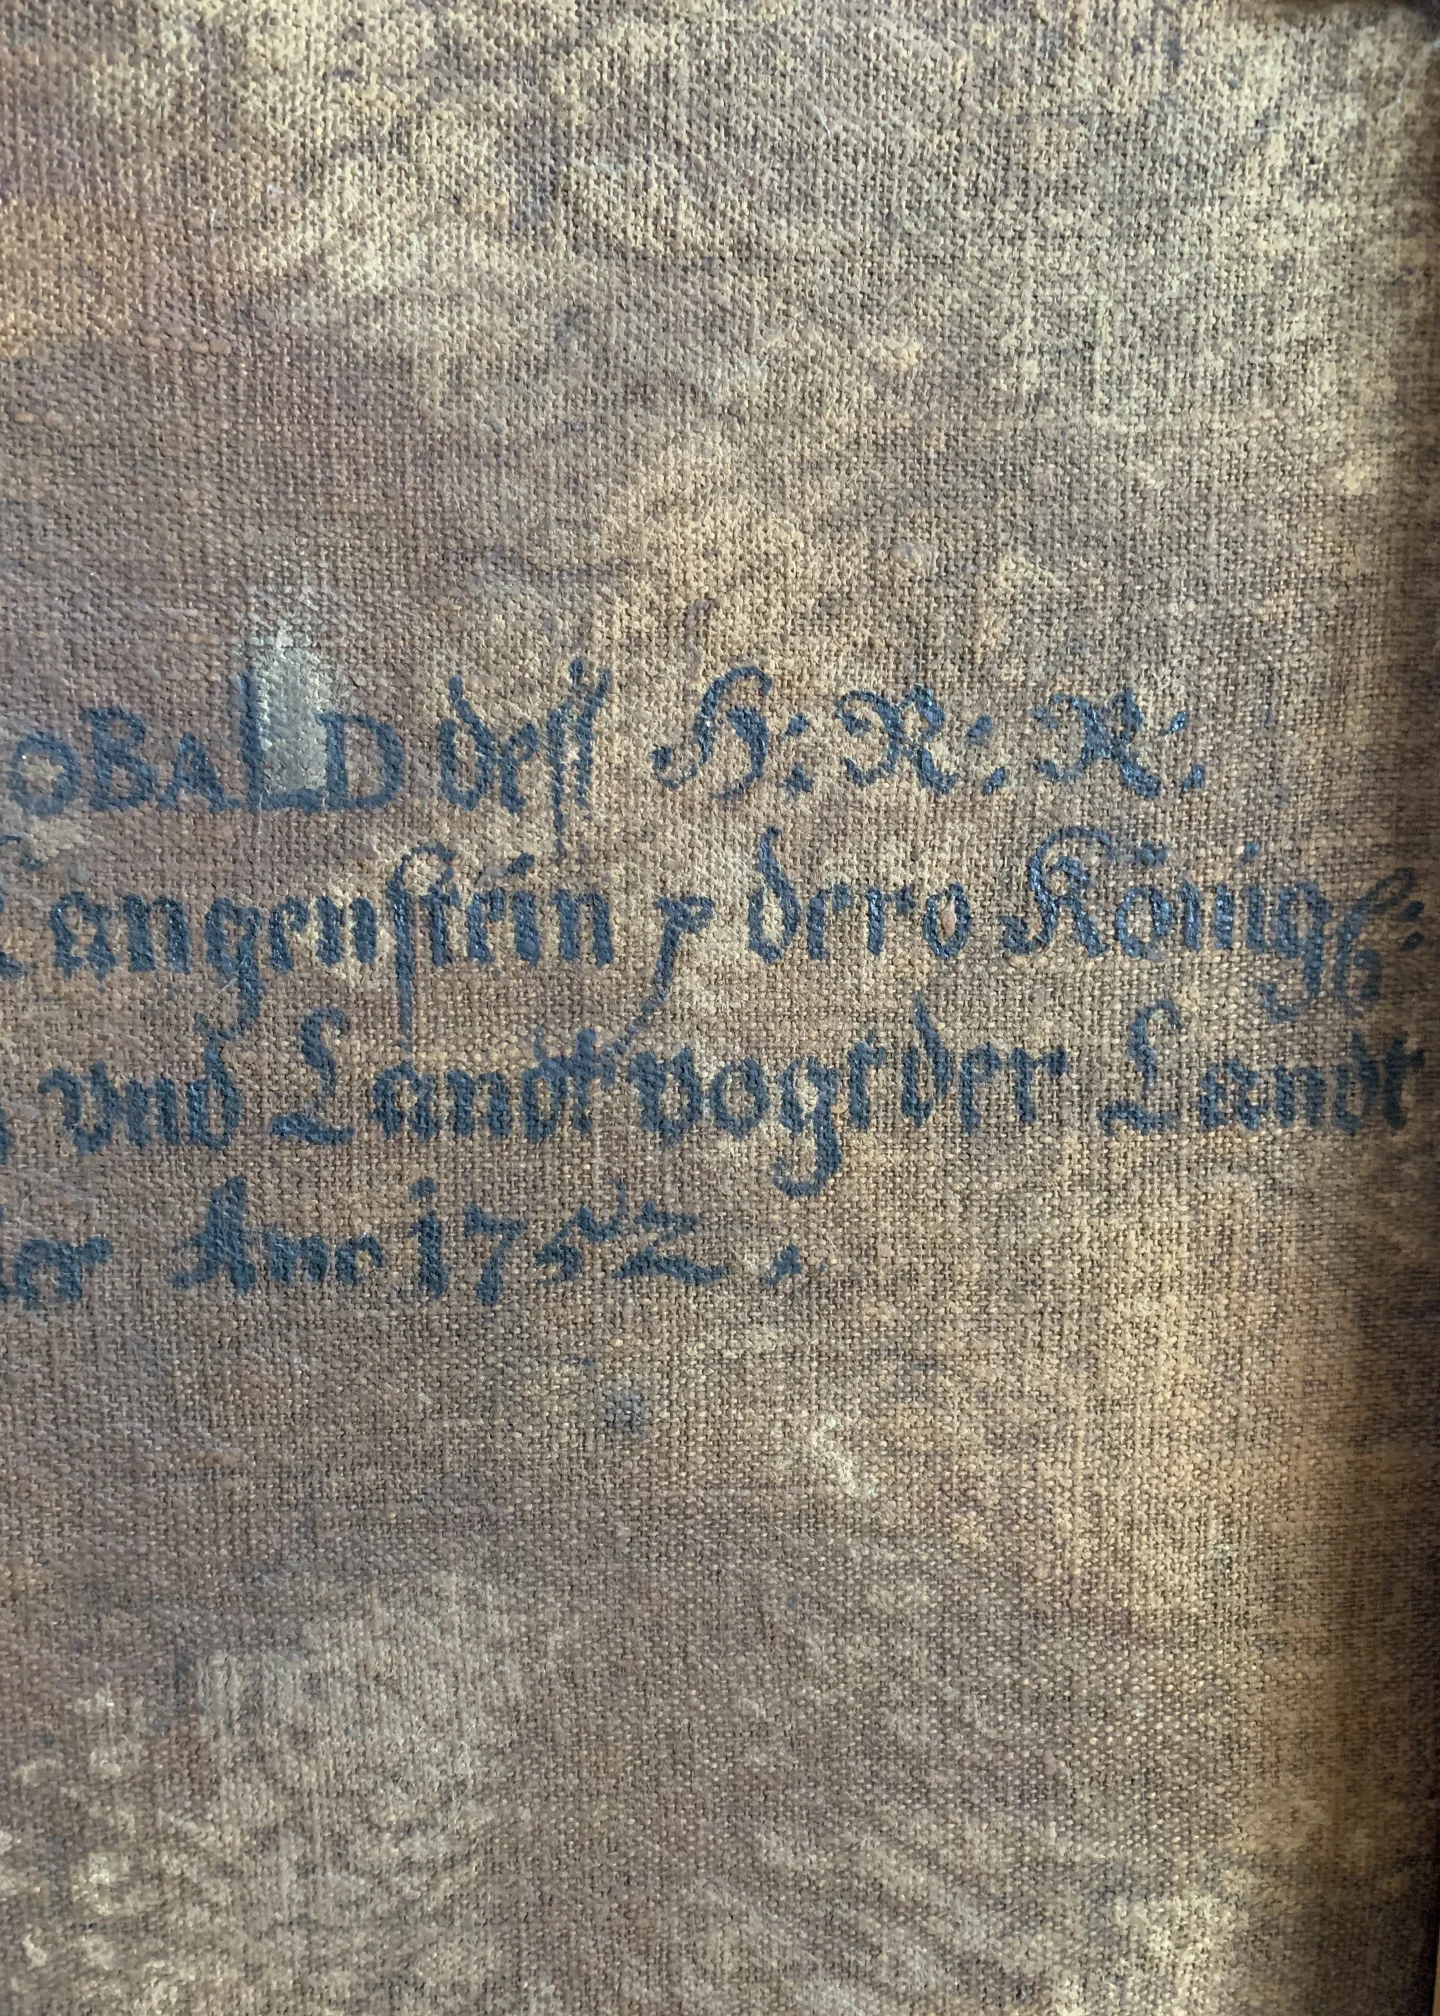 OBALD deß H: R: R:
Langenstein p dero Königl:
vnd Landtvogt der Landt
Ano 1752.